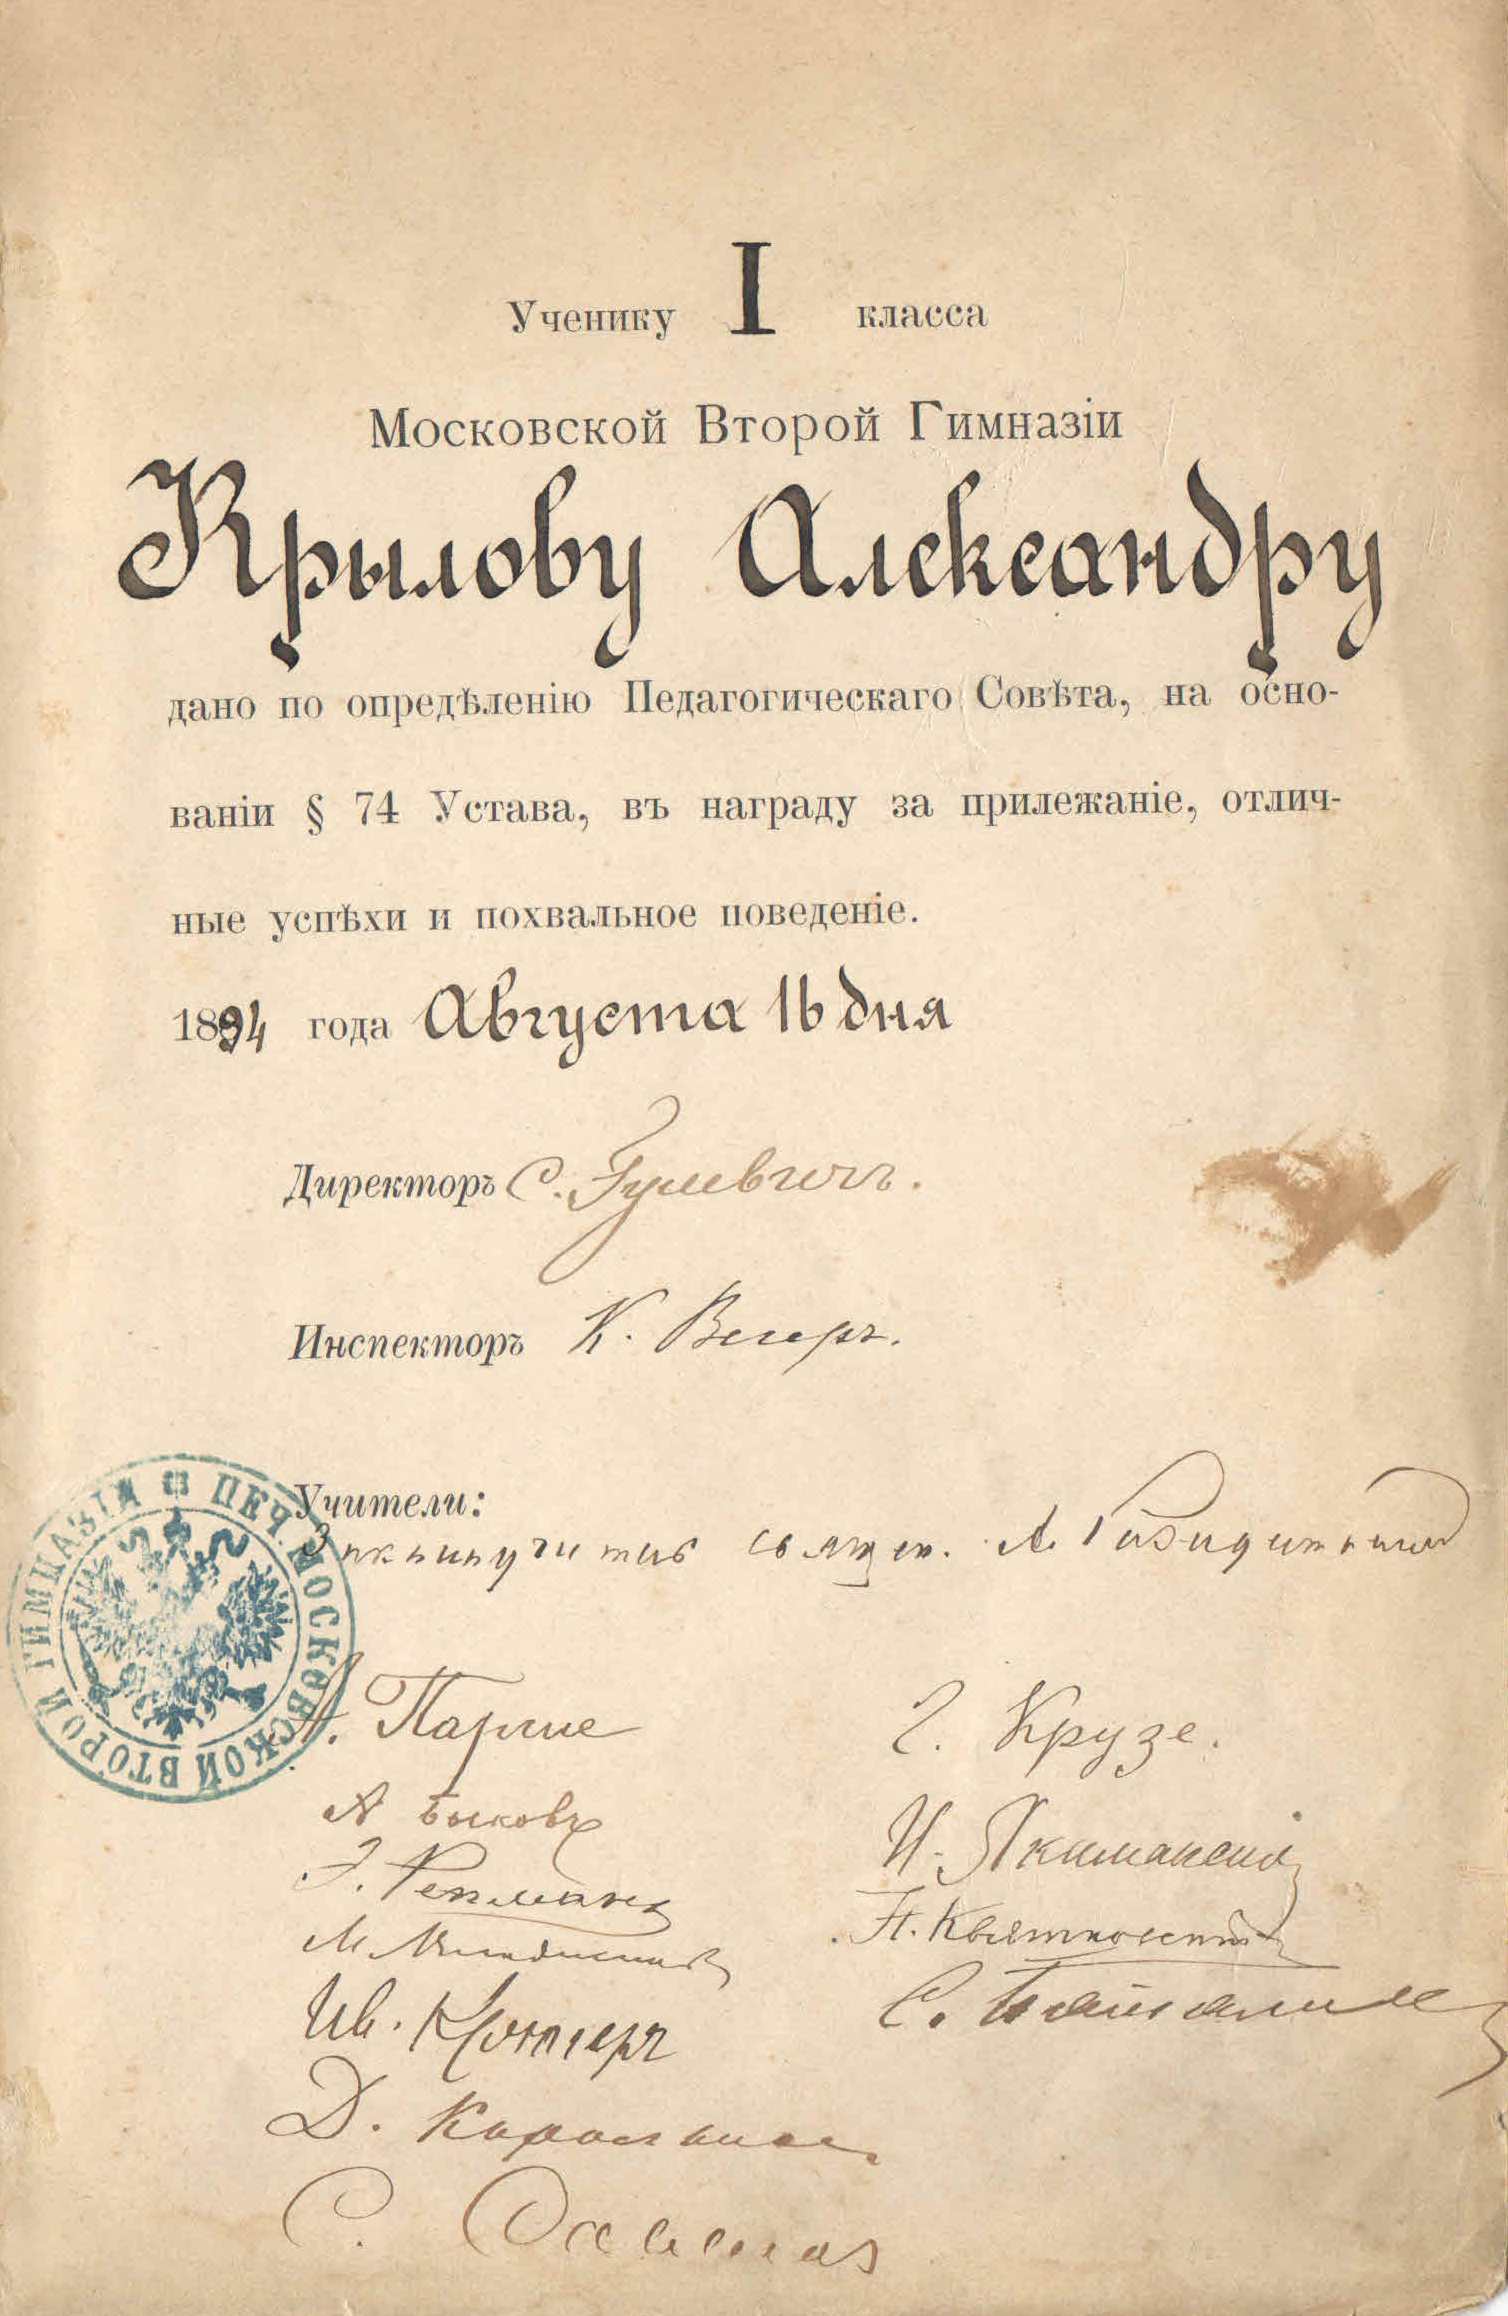 Ученику I класса
Московской Второй Гимназіи
Крылову Александру
дано по опредѣленію Педагогическаго Совѣта, на осно-
ваніи § 74 Устава, въ награду за прилежаніе, отлич-
ные успѣхи и похвальное поведеніе.
1894 года Августа 16 дня
Директоръ С. Гулевичъ.
Инспекторъ К. Вегеръ.
Учители:
Законоучитель священ. А.
ПЕЧ. МОСКОВСКОЙ ВТОРОЙ ГИМНАЗІИ
А. Г. Крузе.
А Быковъ
И. Якиманскій
Э. Репманъ
Н. Квятковскій
М
Ив.
С.
Д.
С.